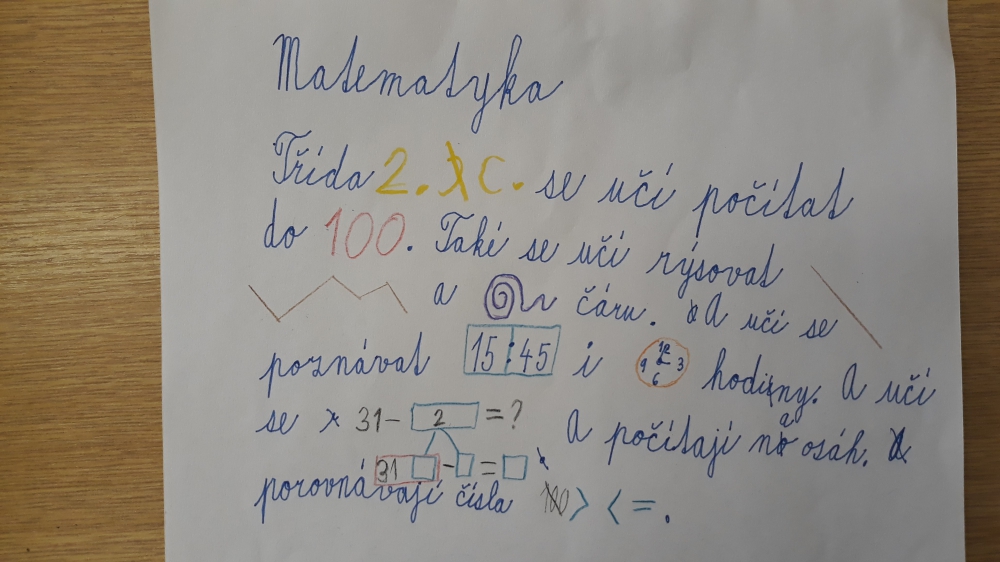 Matematyka
Třída 2. C. se učí počítat
do 100. Také se učí rýsovat
a čáru. A učí se
poznávat 15:45 i 12 9 3 6 hodiny. A učí
se 31- 2 =? A počítají na osáh.
31 - =
porovnávají čísla > < = .